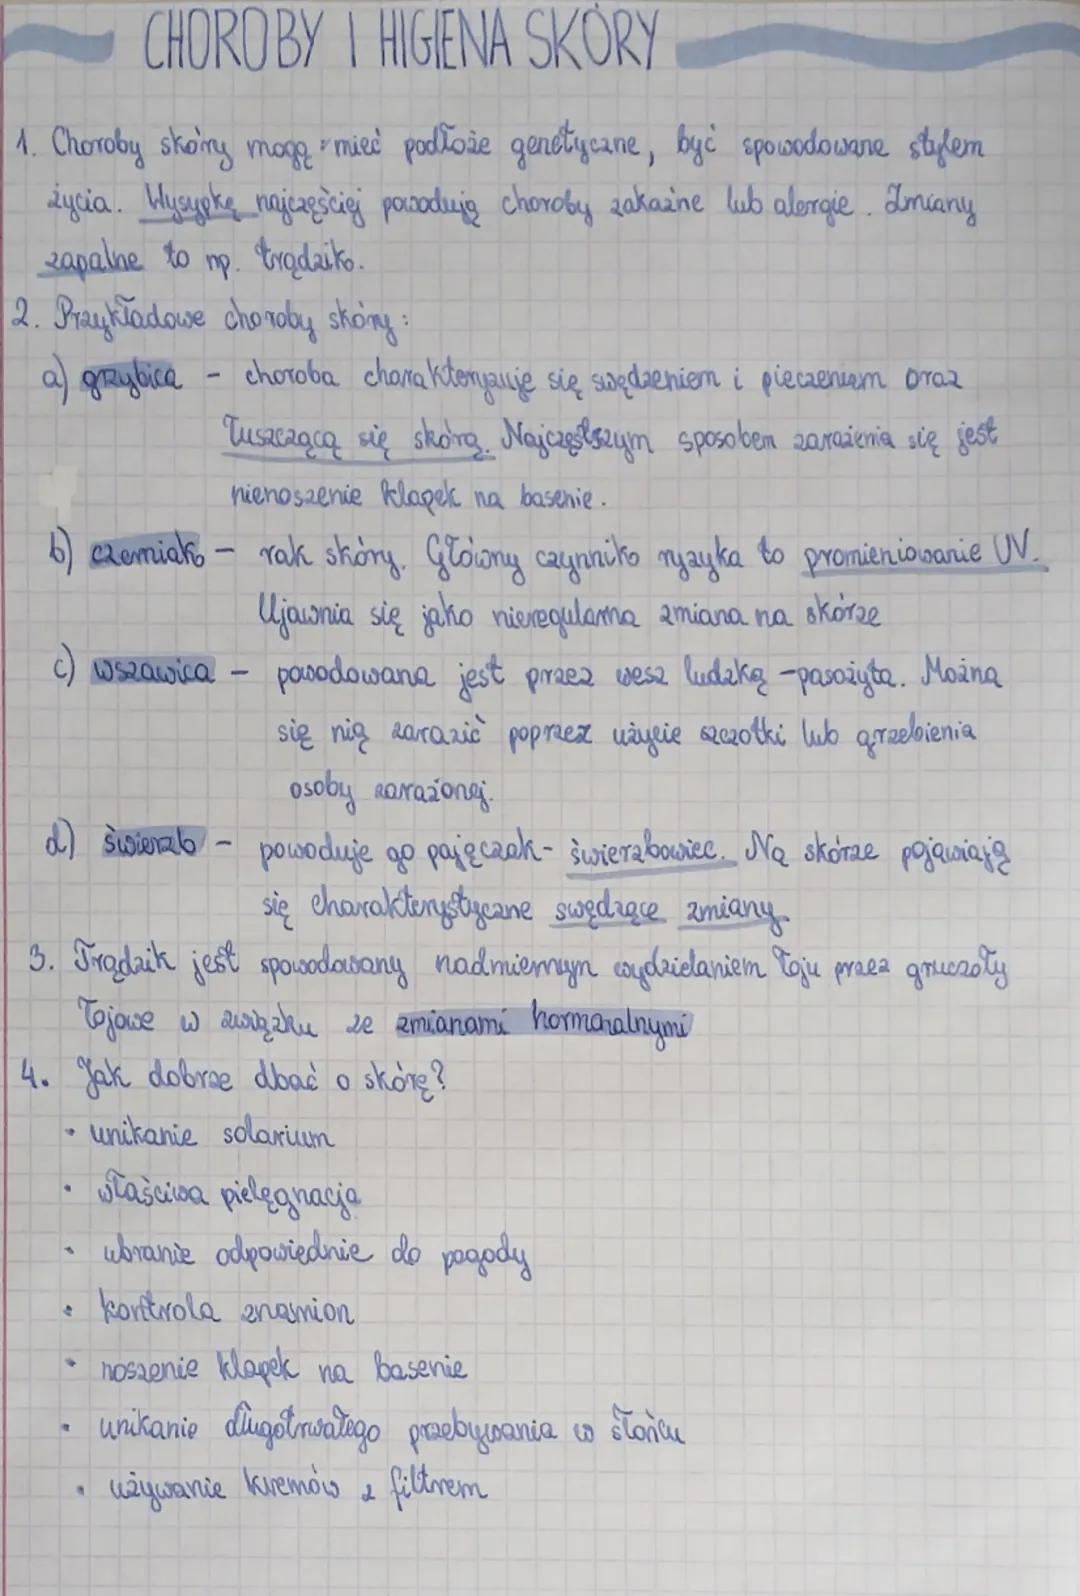 CHOROBY I HIGIENA SKÓRY
1. Choroby skóry mogą mieć podłoże genetyczne, być spowodowane stylem
życia. Wysypkę najczęściej powodują choroby zakaźne lub alergie. Zmiany
zapalne to np. trądzik.
2. Przykładowe choroby skóry:
a) grzybica - choroba charakteryzuje się swędzeniem i pieczeniem oraz
łuszczącą się skórą. Najczęstszym sposobem zarażenia się jest
nienoszenie klapek na basenie.
b) czerniak - rak skóry. Główny czynnik ryzyka to promieniowanie UV.
Ujawnia się jako nieregularna zmiana na skórze
c) wszawica - powodowana jest przez wesz ludzką - pasożyta. Można
się nią zarazić poprzez użycie szczotki lub grzebienia
osoby zarażonej.
d) świerzb - powoduje go pajęczak - świerzbowiec. Na skórze pojawiają
się charakterystyczne swędzące zmiany.
3. Trądzik jest spowodowany nadmiernym wydzielaniem łoju przez gruczoły
łojowe w związku ze zmianami hormonalnymi
4. Jak dobrze dbać o skórę?
• unikanie solarium
• właściwa pielęgnacja
• ubranie odpowiednie do pogody
• kontrola znamion
• noszenie klapek na basenie
• unikanie długotrwałego przebywania w słońcu
• używanie kremów z filtrem